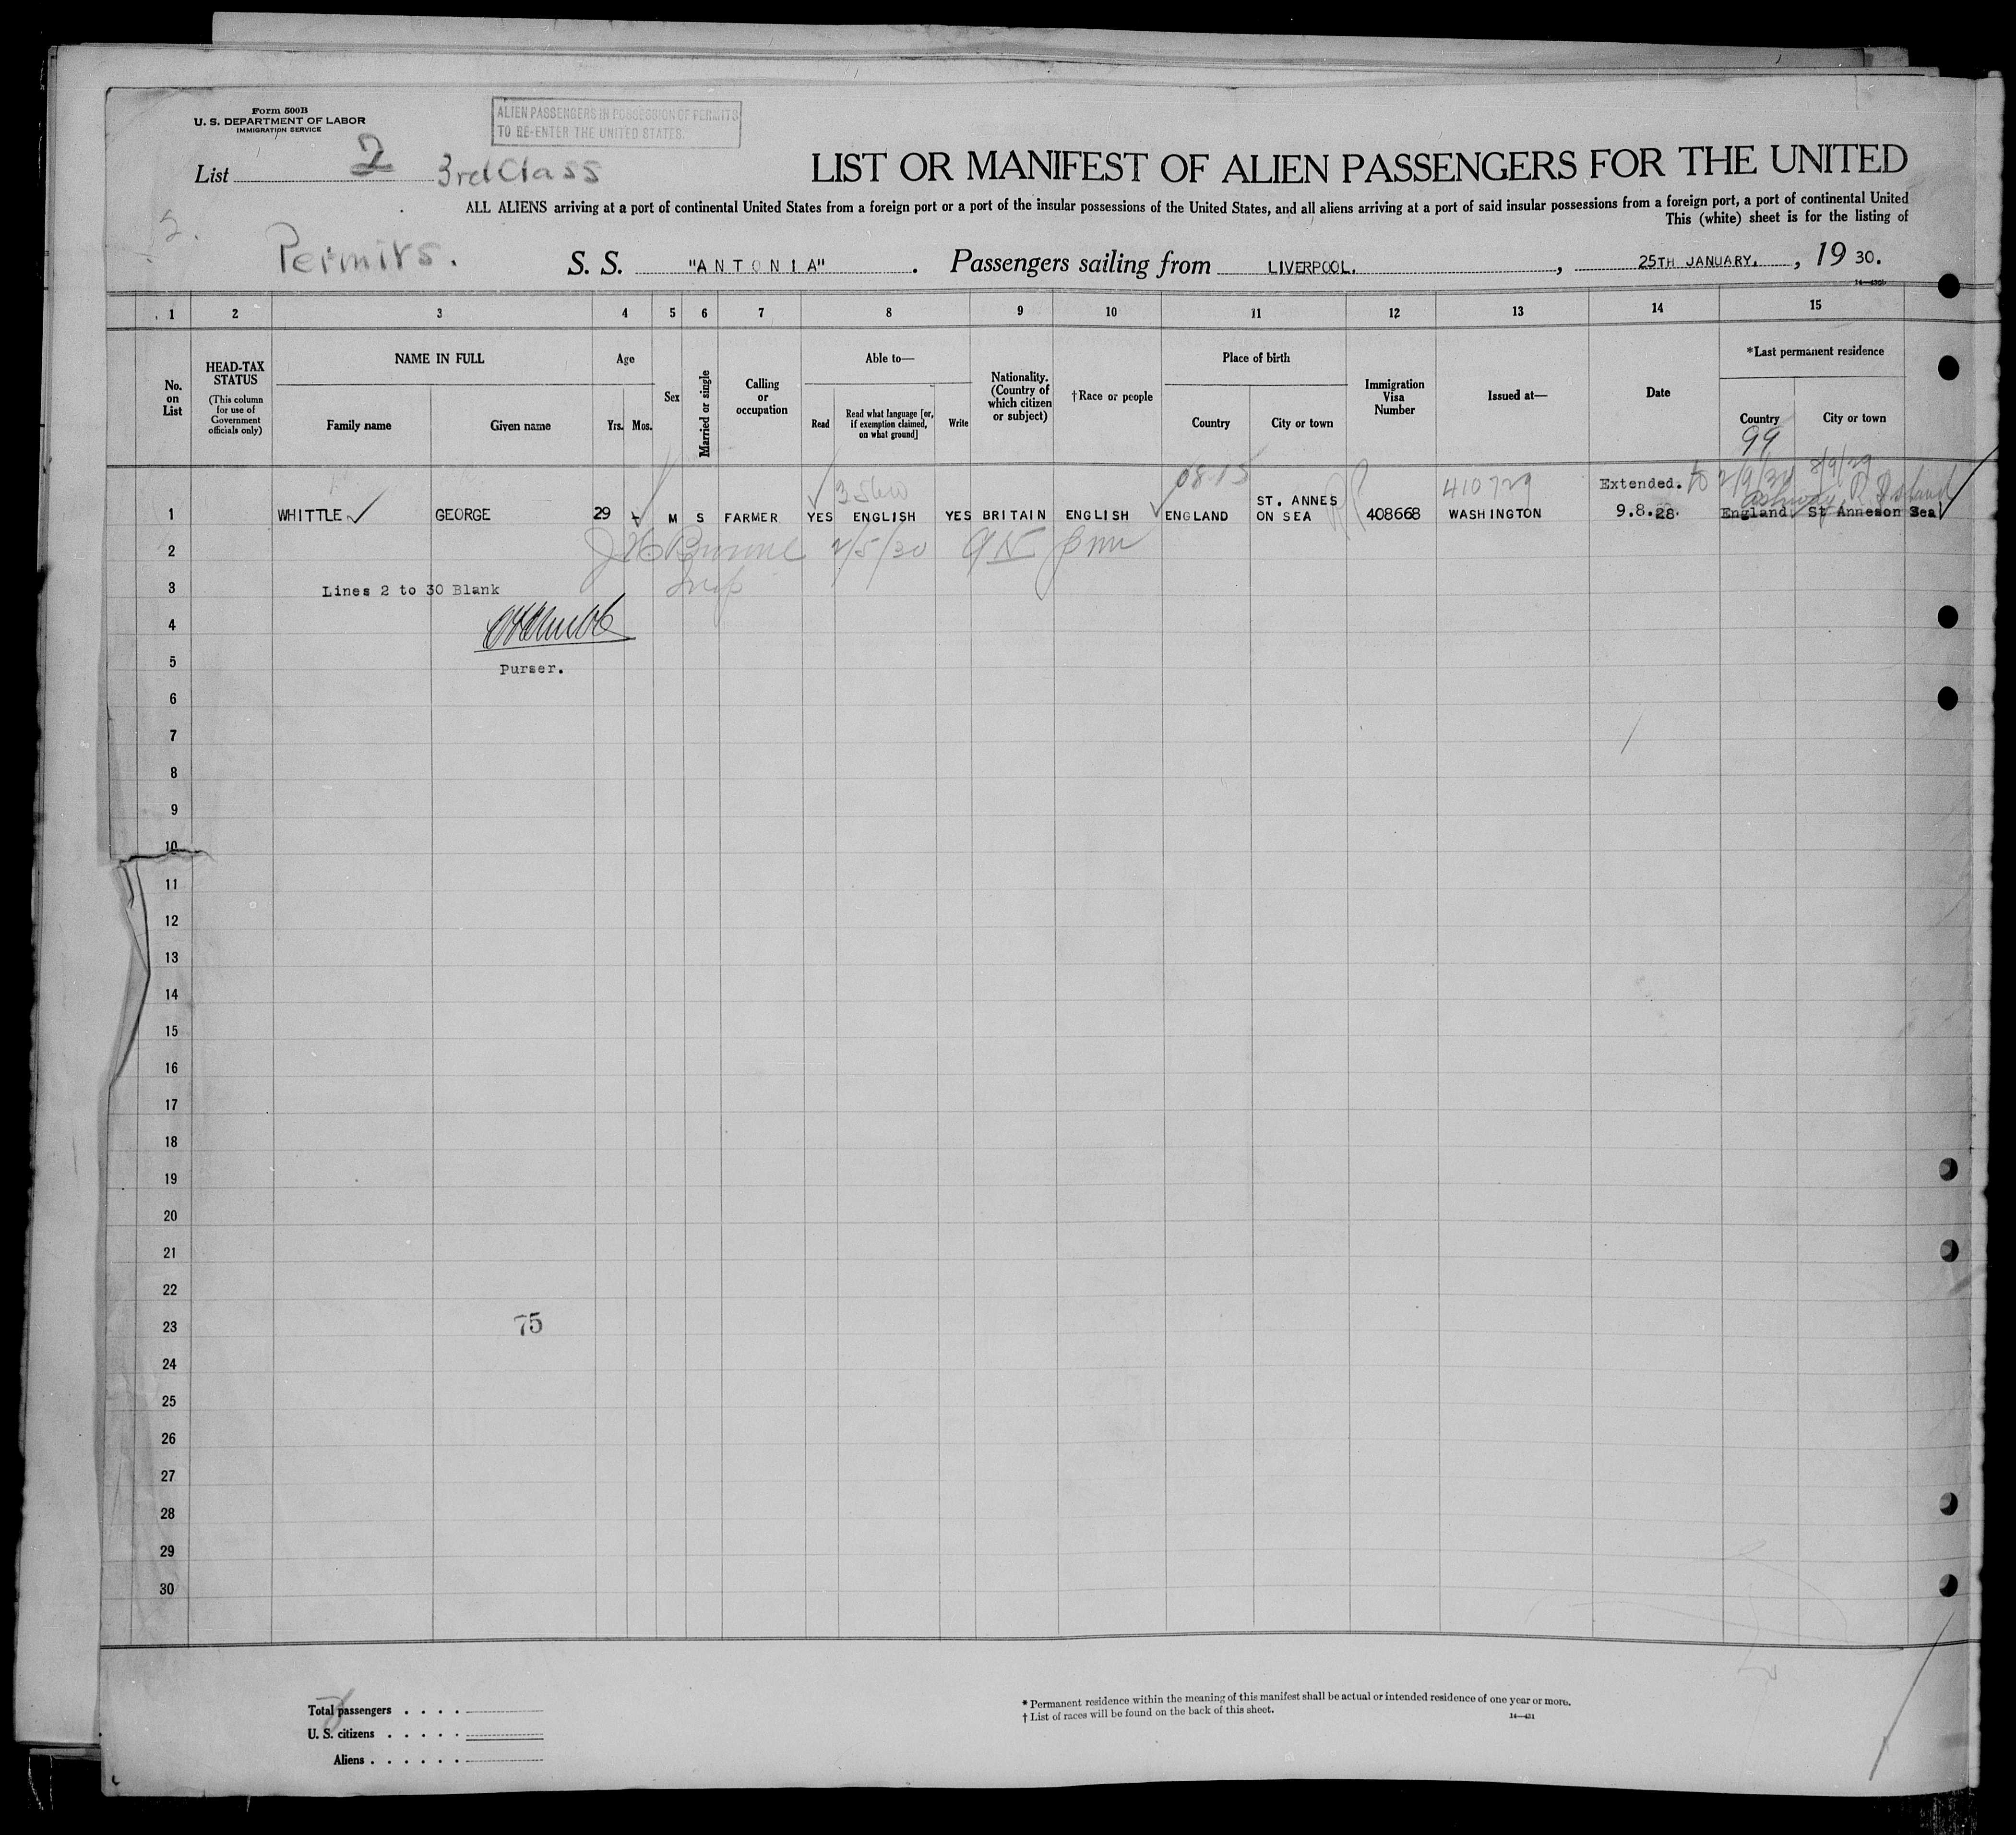 Form 500B
U. S. DEPARTMENT OF LABOR
IMMIGRATION SERVICE
ALIEN PASSENGERS IN POSSESSION OF PERMITS
TO RE-ENTER THE UNITED STATES.
List 2 3rd Class
LIST OR MANIFEST OF ALIEN PASSENGERS FOR THE UNITED
ALL ALIENS arriving at a port of continental United States from a foreign port or a port of the insular possessions of the United States, and all aliens arriving at a port of said insular possessions from a foreign port, a port of continental United
This (white) sheet is for the listing of
2.
Permits.
S. S. "ANTONIA" . Passengers sailing from LIVERPOOL. , 25TH JANUARY. , 19 30.
1 2 3 4 5 6 7 8 9 10 11 12 13 14 15
No. on List
HEAD-TAX STATUS
(This column for use of Government officials only)
NAME IN FULL
Family name Given name
Age
Yrs. Mos.
Sex
Married or single
Calling or occupation
Able to—
Read
Read what language [or, if exemption claimed, on what ground]
Write
Nationality. (Country of which citizen or subject)
†Race or people
Place of birth
Country City or town
Immigration Visa Number
Issued at—
Date
*Last permanent residence
Country City or town
99
410729 Extended. to 2/9/30 8/9/29
R. Island
1 WHITTLE GEORGE 29 - M S FARMER YES ENGLISH YES BRITAIN ENGLISH ENGLAND ST. ANNES ON SEA 408668 WASHINGTON 9.8.28. England St Anneson Sea
2 2/5/30
3 Lines 2 to 30 Blank
4
5 Purser.
6
7
8
9
10
11
12
13
14
15
16
17
18
19
20
21
22
23 75
24
25
26
27
28
29
30
Total passengers . . . .
U. S. citizens . . . . .
Aliens . . . . . .
* Permanent residence within the meaning of this manifest shall be actual or intended residence of one year or more.
† List of races will be found on the back of this sheet.
14—431